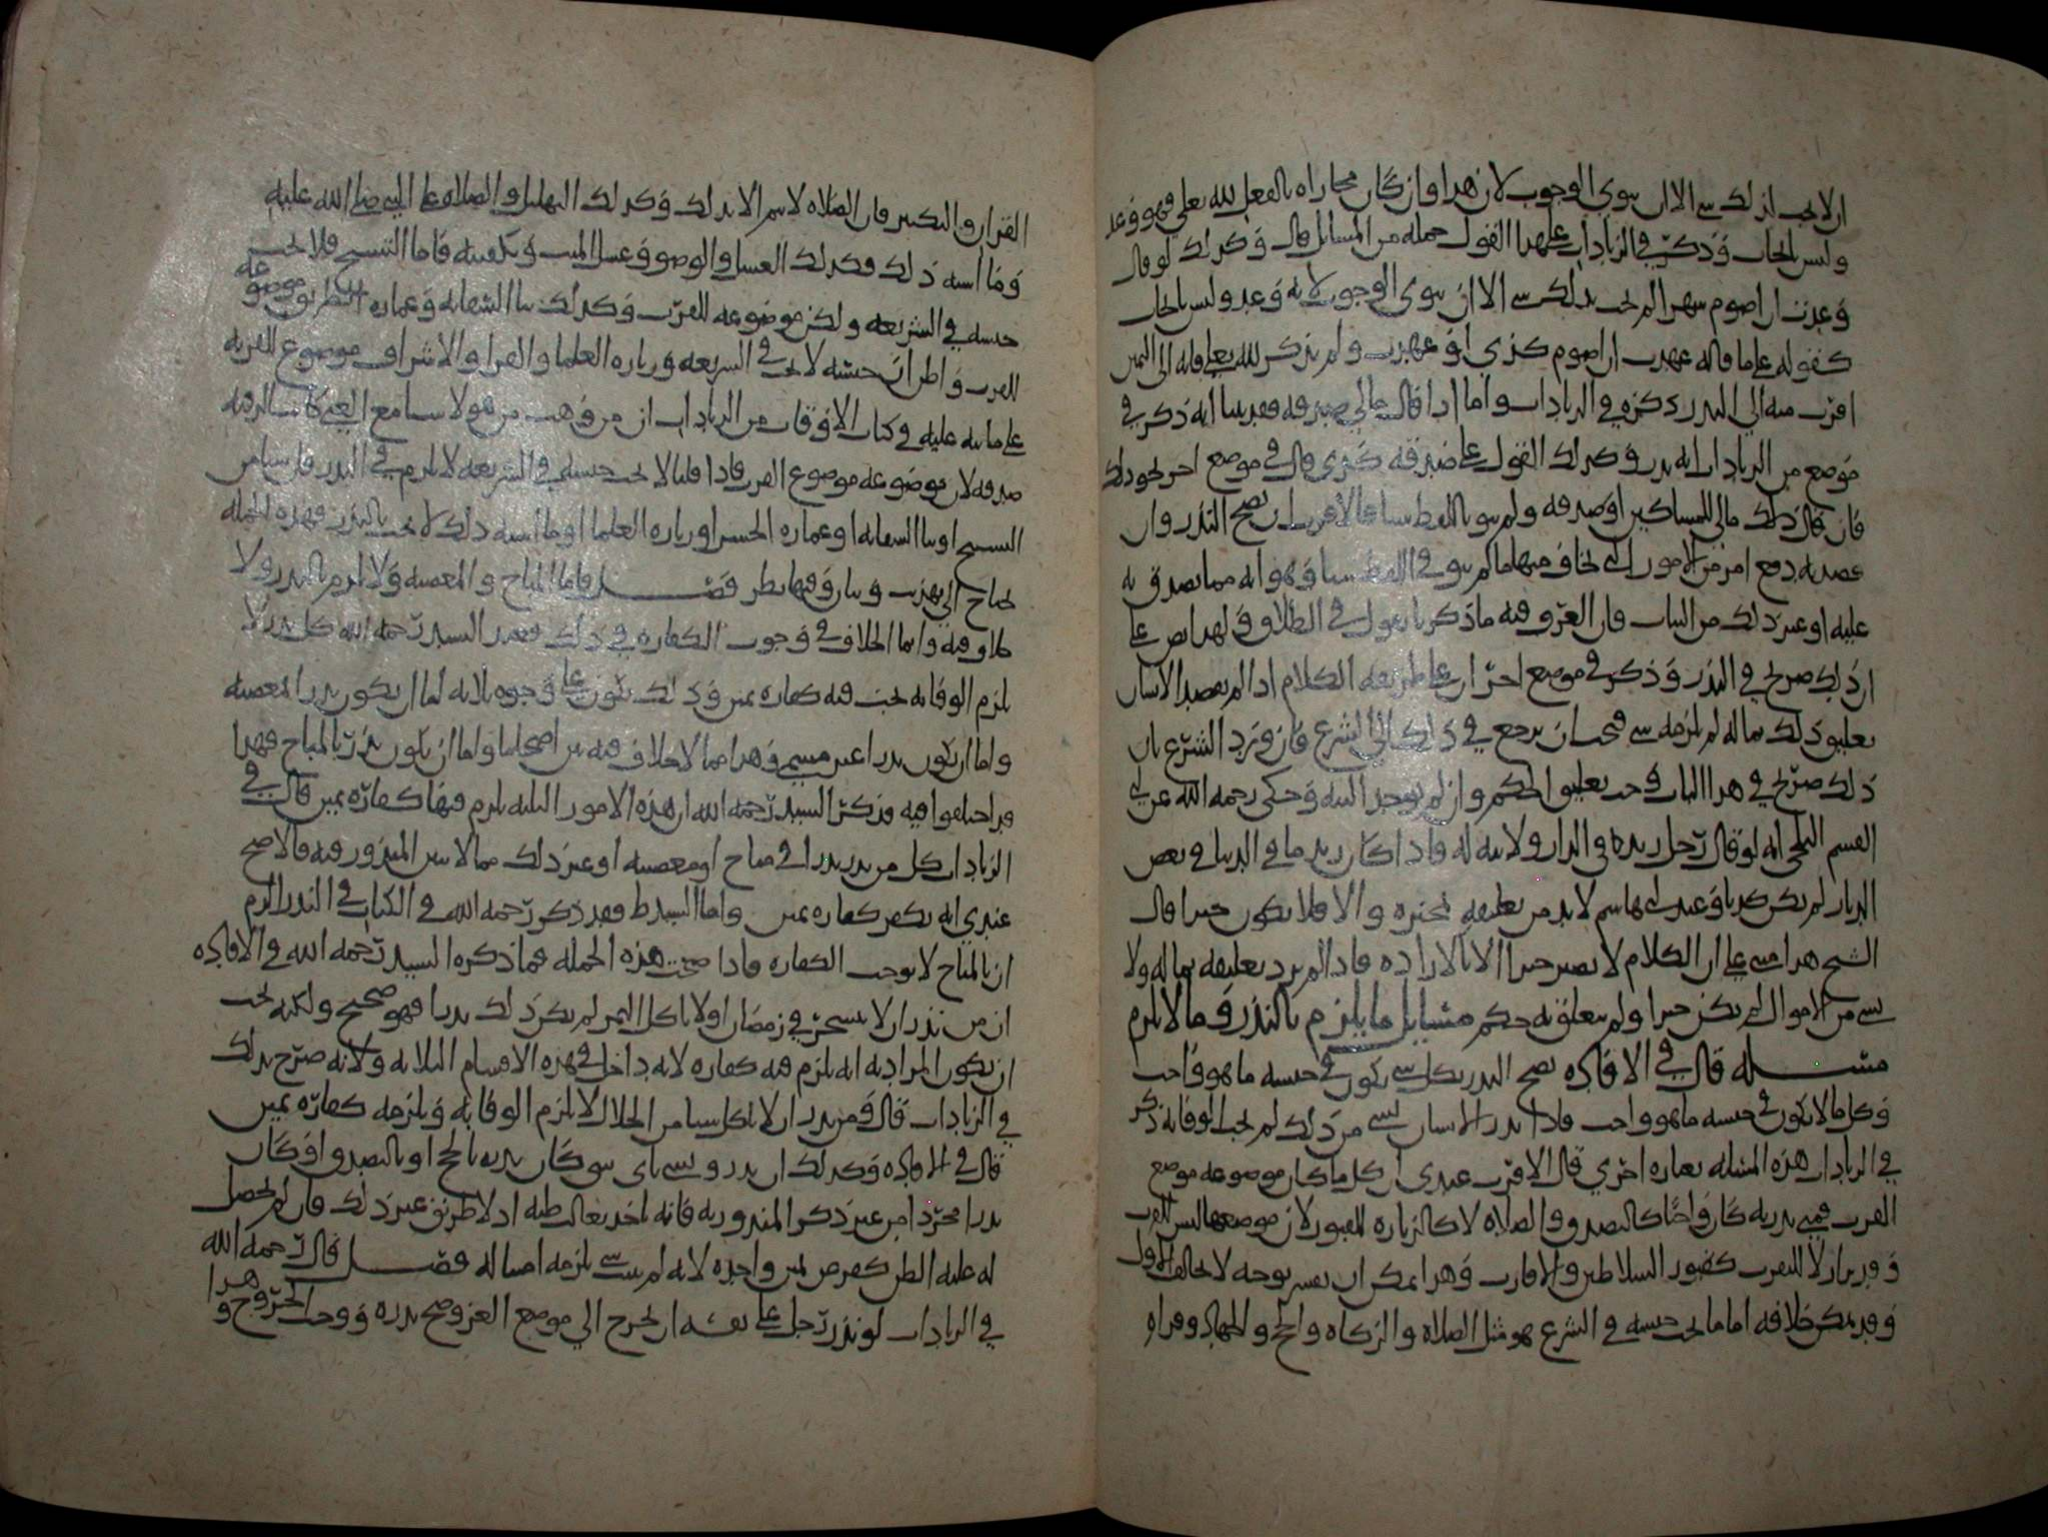 ان لا يجب بذلك شي الا ان ينوي الوجوب لان هذا وان كان مجازاه بالفعل لله تعلى فهو وعد
وليس بايجاب وذكر في الزيادات على هذا القول جمله من المسايل قال وكذلك لو قال
وعدت ان اصوم شهرا لم يجب بذلك شي الا ان ينوي الوجوب لانه وعد وليس بايجاب
كقوله على ما قاله عهدت ان اصوم كذى او عهدت ولم يذكر لله تعلى فانه الى اليمين
اقرب منه الى النذر ذكره في الزيادات واما اذا قال مالي صدقه فقد بينا انه ذكر في
موضع من الزيادات انه نذر وكذلك القول على صدقه كذى قال في موضع اخر نحو ذلك
فان قال ذلك مالي للمساكين او صدقه ولم ينو باللفظ شيا فالاقرب ان يصح النذر وان
قصد به دفع امر من الامور التي يخاف منها ما لم ينو في اللفظ شيا وهو انه مما يصدق به
عليه او غير ذلك من النيات فان العرف فيه ما ذكرنا يقول في الطلاق ولهذا نص على
ان ذلك صريح في النذر وذكر في موضع اخر ان على طريقه الكلام اذا لم يقصد الانسان
تعليق ذلك بماله لم يلزمه شي فيجب ان يرجع في ذلك الى الشرع فان ورد الشرع بان
ذلك صريح في هذا الباب وجب تعليق الحكم وان لم توجد النيه وحكى رحمه الله عن ابي
القسم البلخي انه لو قال رجل زيد في الدار ولا نيه له فاذا كان زيد ما في الدنيا في بعض
الديار لم يكن كذبا وعند ابي هاشم لا بد من تعليقه بمخبره والا فلا يكون خبرا قال
الشيخ هذا مبني على ان الكلام لا يصير خبرا الا بالاراده فاذا لم يرد تعليقه بماله ولا
بشي من الاموال لم يكن خبرا ولم يتعلق به حكم مسايل ما يلزم بالنذر وما لا يلزم
مسله قال في الافاده يصح النذر بكل شي يكون في جنسه ما هو واجب
وكل ما لا يكون في جنسه ما هو واجب فاذا نذر الانسان بشي من ذلك لم يجب الوفا به ذكر
في الزيادات هذه المسله بعباره اخرى قال الاقرب عندي ان كل ما كان موضوعه موضع
القرب فمتى نذر به كان واجبا كالتصدق والصلاه لا كالزياره للقبور لان موضعها ليس للقرب
وقد يزار لا للتقرب كقبور السلاطين والاقارب وهذا يمكن ان يفسر بوجه لا يخالف الاول
وقد يمكن خلافه اما ما يجب جنسه في الشرع فهو مثل الصلاه والزكاه والحج والجهاد وقراه
القران والتكبير فان الصلاه لا تتم الا بذلك وكذلك التهليل والصلاه على النبي صلى الله عليه
وما اشبه ذلك فكذلك الغسل والوضو وغسل الميت وتكفينه فاما التسبيح فلا يجب
جنسه في الشريعه ولكن موضوعه للقرب وكذلك بنا السقايه وعماره الطريق موضوعه
للقرب واطراف جنسه لا يجب في الشريعه وزياره العلما والقرا والاشراف موضوع للقربه
على ما نبه عليه في كتاب الاوقات من الزيادات ان من وهب من هولا شيا مع الغنى كانت الهبه
صدقه لان موضوعه موضوع القرب فاذا قلنا لا يجب جنسه في الشريعه لا يلزم في النذر فان شيا من
التسبيح او بنا السقايه او عماره الجسر او زياره العلما او ما اشبه ذلك لا يجب بالنذر فهذه الجمله
تحتاج الى تهذيب وبيان وفيها نظر فصل فاما المباح والمعصيه ولا يلزم بالنذر ولا
خلاف فيه وانما الخلاف في وجوب الكفاره في ذلك فعند السيد رحمه الله كل نذر لا
يلزم الوفا به يجب فيه كفاره يمين وذلك يكون على وجوه ثلاثه اما ان يكون نذرا بمعصيه
واما ان يكون نذرا غير مسمى وهذا مما لا خلاف فيه بين اصحابنا واما ان يكون نذرا بالمباح فهذا
قد اختلفوا فيه فذكر السيد رحمه الله ان هذه الامور الثلثه يلزم فيها كفاره يمين قال في
الزيادات كل من نذر نذرا في مباح او معصيه او غير ذلك مما لاسر المنذور فيه فالاصح
عندي انه يكفر كفاره يمين واما السيد ط فقد ذكر رحمه الله في الكتاب في النذر الزم
ان بالمباح لا يوجب الكفاره فاذا صحت هذه الجمله فما ذكره السيد رحمه الله في الافاده
ان من نذر ان لا يتسحر في رمضان او لا ياكل التمر لم يكن ذلك نذرا فهو صحيح ولكنه يجب
ان يكون المراد به انه يلزم فيه كفاره لانه داخل في هذه الاقسام الثلاثه ولانه صرح بذلك
في الزيادات قال ومن نذر ان لا ياكل شيا من الحلال لا يلزم الوفا به ويلزمه كفاره يمين
قال في الافاده وكذلك ان نذر ونسي باي شي كان نذره بالحج او بالتصدق او كان
نذرا مجردا من غير ذكر المنذور به فانه ياخذ بغالب ظنه اذ لا طريق غير ذلك فان لم يحصل
له غلبه الظن كفر عن يمين واحده لانه لم يثبت شي يلزمه امساله فصل قال رحمه الله
في الزيادات لو نذر رجل على نفسه ان يخرج الى موضع الغزو صح نذره ووجب الخروج وهذا